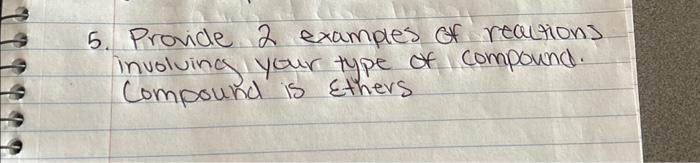 5. Provide 2 examples of reactions
involving your type of compound.
Compound is Ethers